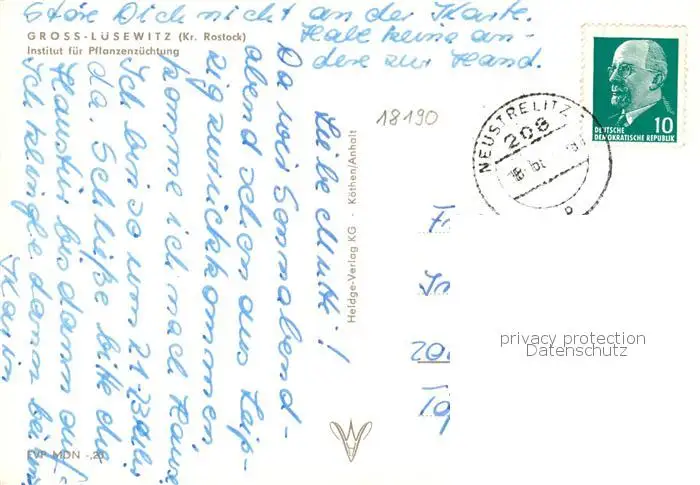 Störe Dich nicht an der Karte.
Hatte keine an-
dere zur Hand.
GROSS-LÜSEWITZ (Kr. Rostock)
Institut für Pflanzenzüchtung
Liebe Mutti!
Da wir Sonnabend-
abend schon aus Leip-
zig zurückkommen,
komme ich nach Hause.
Ich bin so um 21-23 Uhr
da. Schließe bitte die
Haustür bis dann auf.
Ich klingle dann bei uns.
Karin
18190
Heldge-Verlag KG - Köthen/Anhalt
NEUSTRELITZ
208
DEUTSCHE
DEMOKRATISCHE REPUBLIK
10
privacy protection
Datenschutz
EVP MDN -,20